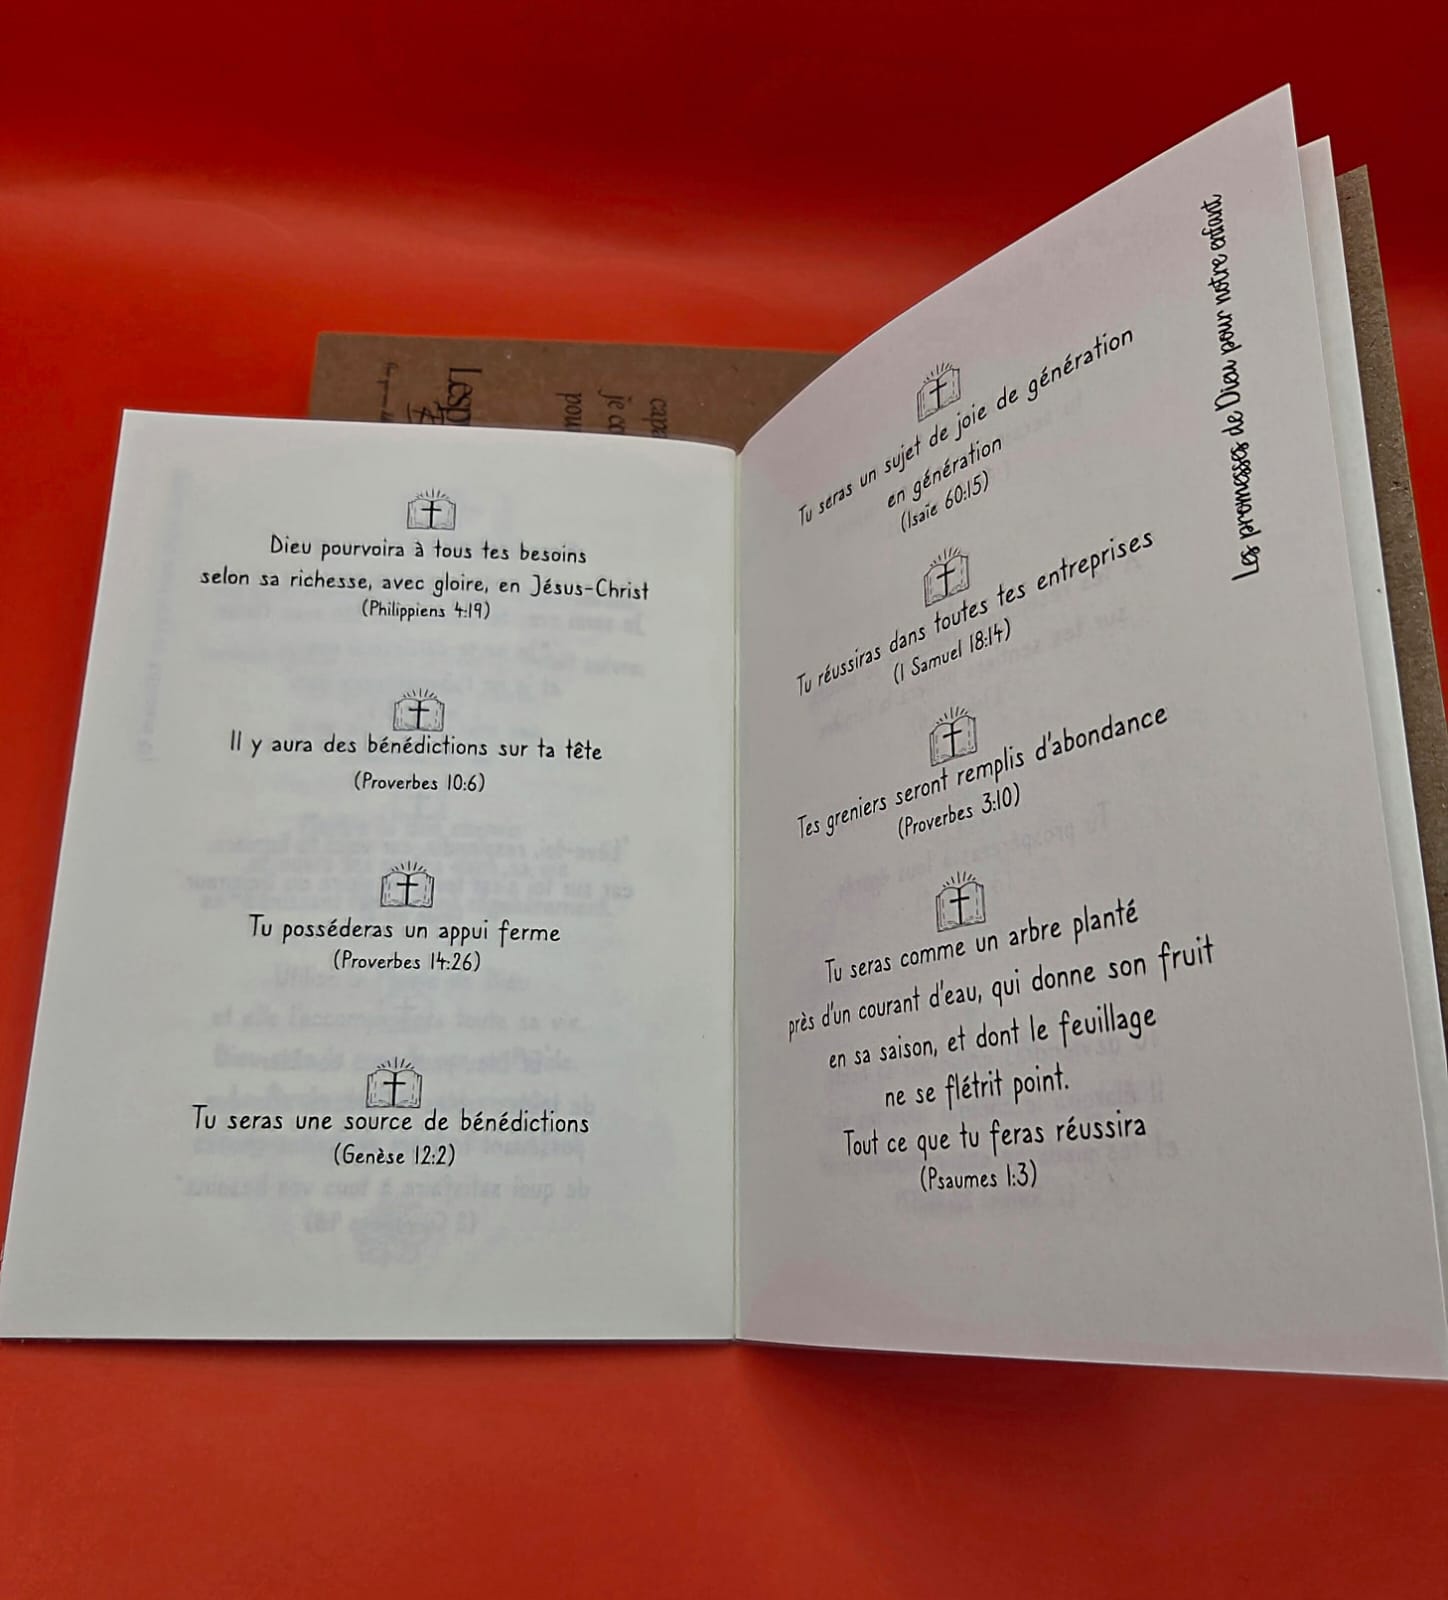 Dieu pourvoira à tous tes besoins
selon sa richesse, avec gloire, en Jésus-Christ
(Philippiens 4:19)
Il y aura des bénédictions sur ta tête
(Proverbes 10:6)
Tu posséderas un appui ferme
(Proverbes 14:26)
Tu seras une source de bénédictions
(Genèse 12:2)
Tu seras un sujet de joie de génération
en génération
(Isaïe 60:15)
Tu réussiras dans toutes tes entreprises
(1 Samuel 18:14)
Tes greniers seront remplis d'abondance
(Proverbes 3:10)
Tu seras comme un arbre planté
près d'un courant d'eau, qui donne son fruit
en sa saison, et dont le feuillage
ne se flétrit point.
Tout ce que tu feras réussira
(Psaumes 1:3)
Les promesses de Dieu pour notre enfant